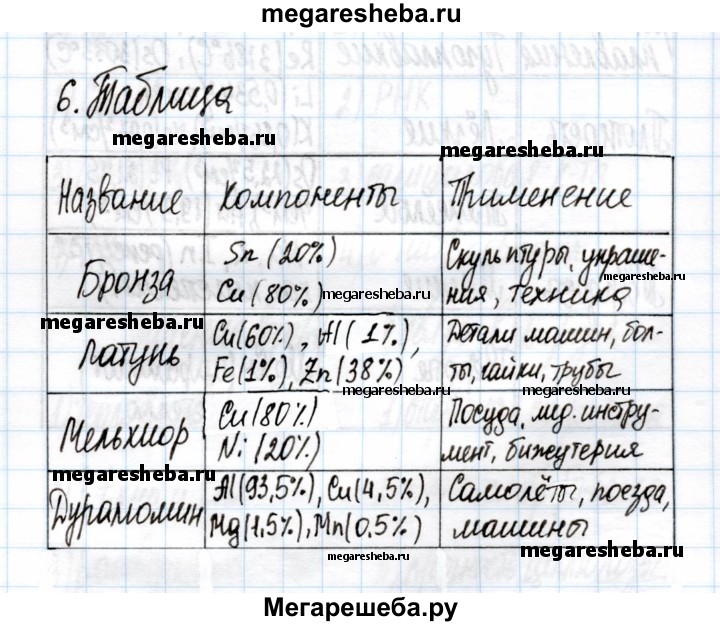 megaresheba.ru
6. Таблица
megaresheba.ru
megaresheba.ru
Название Компоненты Применение
Бронза
Sn (20%)
Cu (80%)
megaresheba.ru
Скульптуры, украше-
megaresheba.ru
ния, техника
megaresheba.ru
Латунь
Cu(60%), Al(1%),
Fe(1%), Zn(38%)
Детали машин, бол-
ты, гайки, трубы
megaresheba.ru
Мельхиор
Cu(80%)
Ni(20%)
Посуда, мед. инстру-
мент, бижутерия
megaresheba.ru
Дуралюмин
Al(93,5%), Cu(4,5%),
Mg(1,5%), Mn(0.5%)
Самолёты, поезда,
машины
megaresheba.ru
megaresheba.ru
Мегарешеба.ру